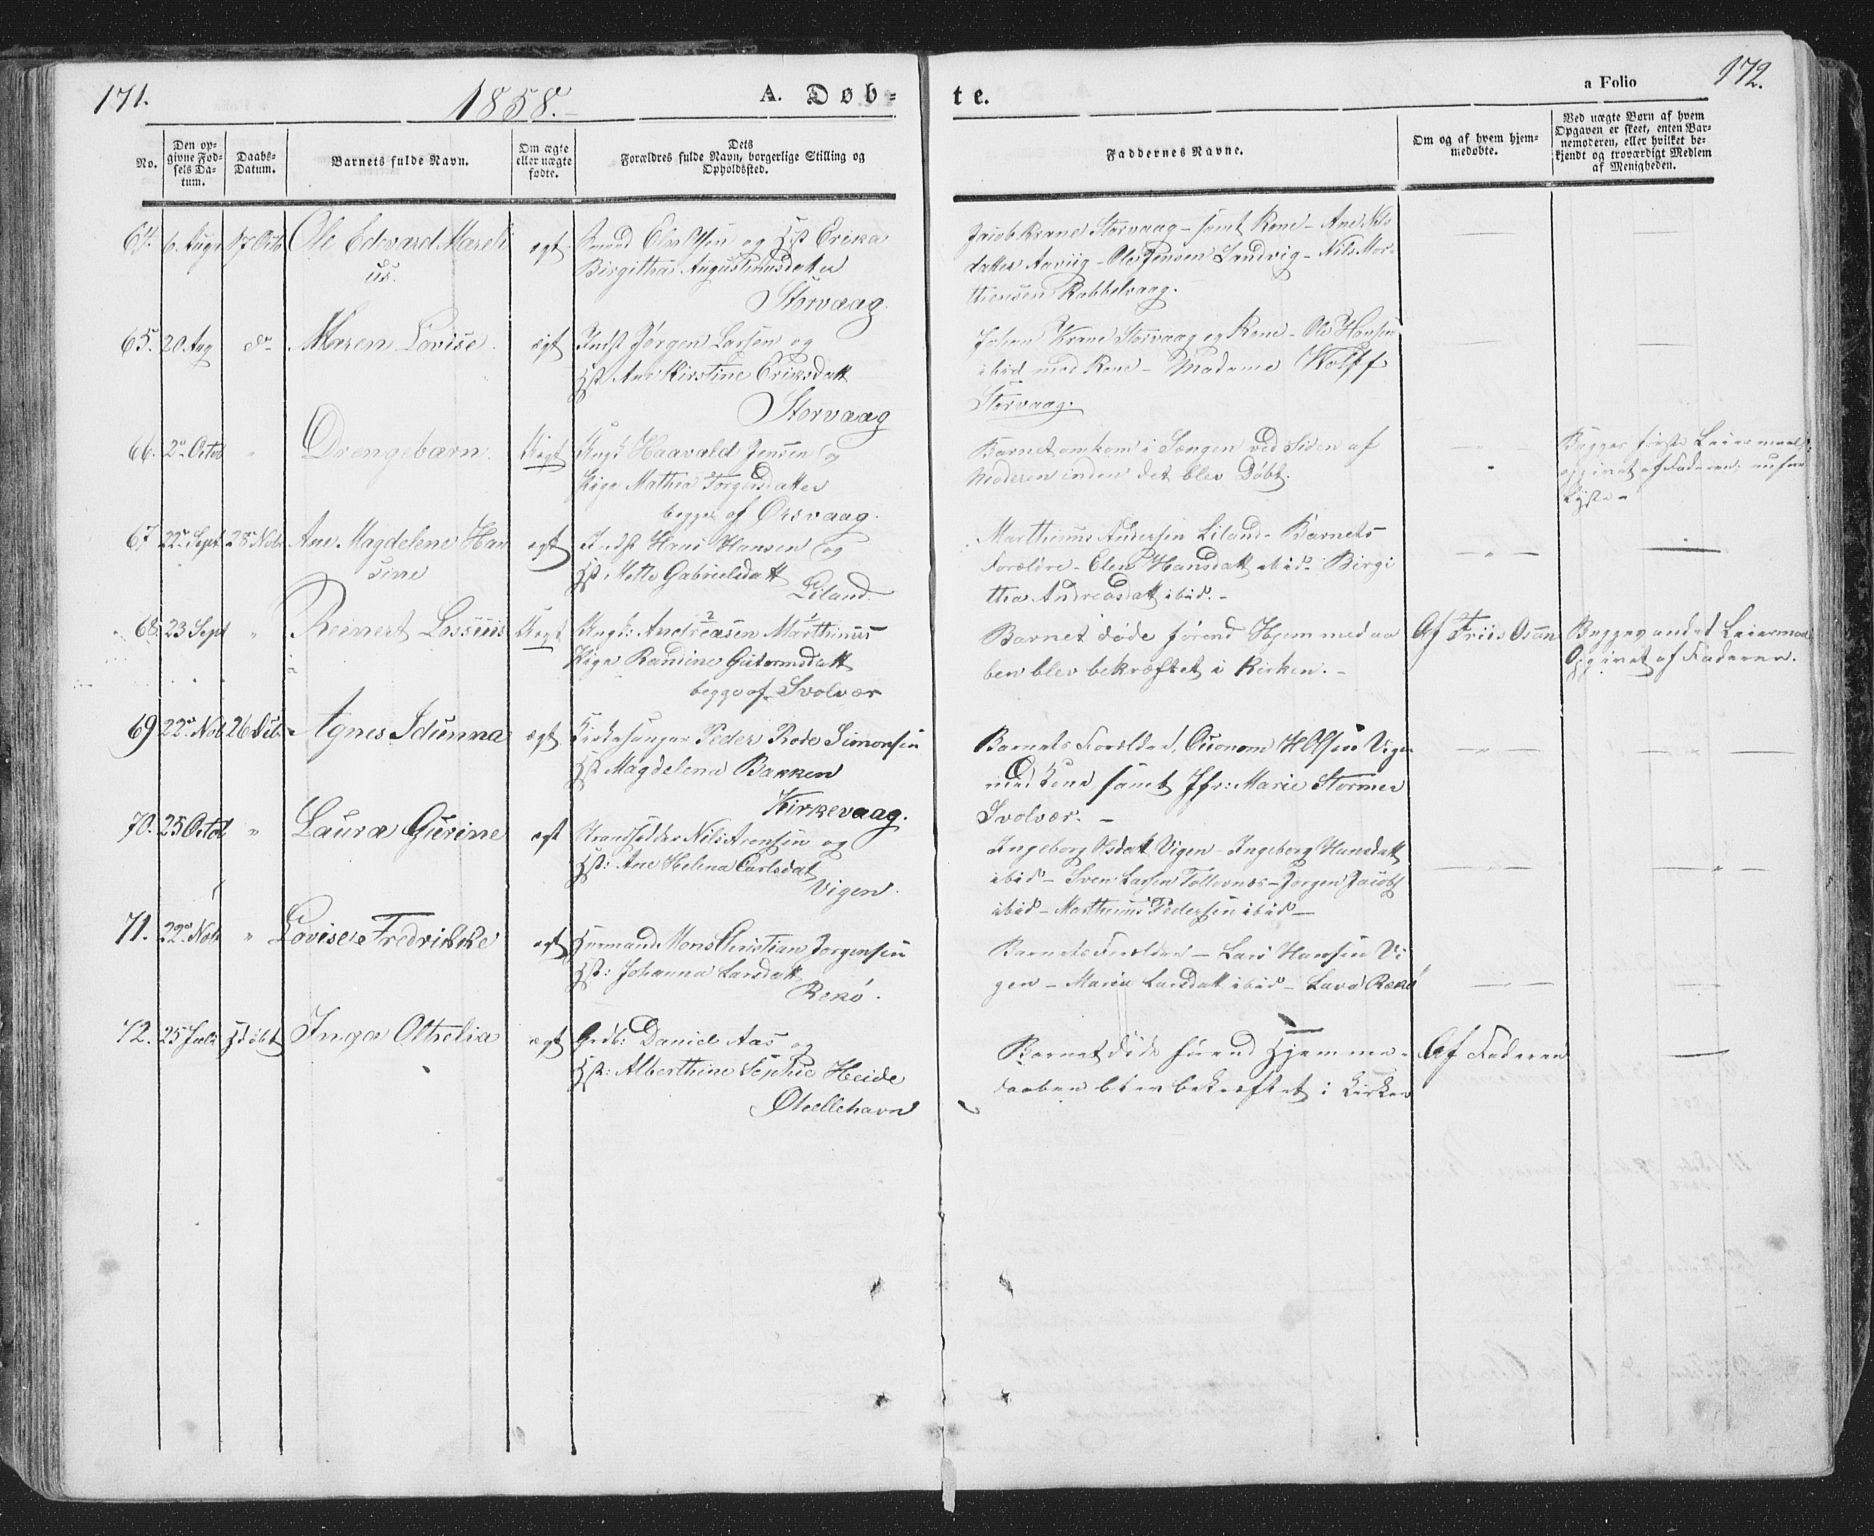 171.
1858.
A. Døb-
te.
a Folio
172.
No.
Den op-
givne Fød-
sels Da-
tum.
Daabs-
Datum.
Barnets fulde Navn.
Om ægte
eller uægte
fødte.
Dets
Forældres fulde Navn, borgerlige Stilling og
Opholdssted.
Faddernes Navne.
Om og af hvem hjem-
medøbte.
Ved uægte Børn af hvem
Opgaven er skeet, enten Bar-
nemoderen, eller hvilket be-
kjendt og troværdigt Medlem
af Menigheden.
64. 6 Aug 17 Octb Ole Edevard Mareli
us.
ægt
og Hst Erika
Birgitha Augustinusdatter
Storvaag.
Jacob Krane Storvaag - samt Kone - Ane Nils
datter - Ole Jensen Sandvig - Nils Mor-
thensen Rabbelvaag.
65. 20 Aug do Maren Lovise.
ægt Indst Jørgen Larsen og
Hst Ane Kirstine Eriksdatt
Storvaag
Johan Krane Storvaag og Kone - Ole Hansen
ibid med Kone - Madame Wolff
Storvaag.
66. 2 Octob " Drengebarn.
Uægt Ungk Haavald Jensen og
Pige Mathea Torgersdatter
begge af Ørsvaag.
Barnet omkom i Sengen ved Siden af
Moderen inden det blev Døbt.
Begges første Leiermaal
opgivet af Faderen,
67 22 Sept 28 Nob Ane Magdelene Han
sine
ægt Indst Hans Hansen og
Hst Mette Gabrielsdatt
Liland.
Marthinus Andersen Liland - Barnets
Forældre - Elen Hansdatt ibid - Birgi
tha Andreasdatt ibid. -
68. 23 Sept " Reinert Lossius
Uægt Ungk: Andreasen Marthinus
Pige Randine Gutormsdatt
begge af Svolvær
Barnet døde førend Hjemmedaa
ben blev bekræftet i Kirken. -
Af Friis Osan
Begges andet Leiermaal
Opgivet af Faderen.
69 22 Nob 26 Decb Agnes Idunna
ægt Kirkesanger Peder Rode Simonsen
Hst Magdelena Bakken
Kirkevaag.
Barnets Forældre, Oconom H Olsen Vigen
med Kone samt Jfr: Marie Stormer
Svolvær. -
70. 25 Octob " Laura Gurine
ægt Strandsidder Nils Arensen og
Hst: Ane Helena Carlsdat
Vigen.
Ingeborg Olsdatt Vigen - Ingeborg Hansdatt
ibid - Sven Larsen - Jorgen Jacobs
ibid - Marthinus Pedersen ibid -
71. 22 Nob " Lovise Fredrikke
ægt Mons Christian Jorgensen
Hst: Johanna Larsdatt
Rekø.
Barnets Forældre - Lars Hansen Vi
gen - Maria Larsdatt ibid - Rækø
72. 25 Juli Hdøbt Inga Othelia
ægt Grdb: Daniel Aas og
Hst: Alberthine Sophie Heide
Ørellehavn
Barnet døde førend Hjemme-
daaben blev bekræftet i Kirken
Af Faderen